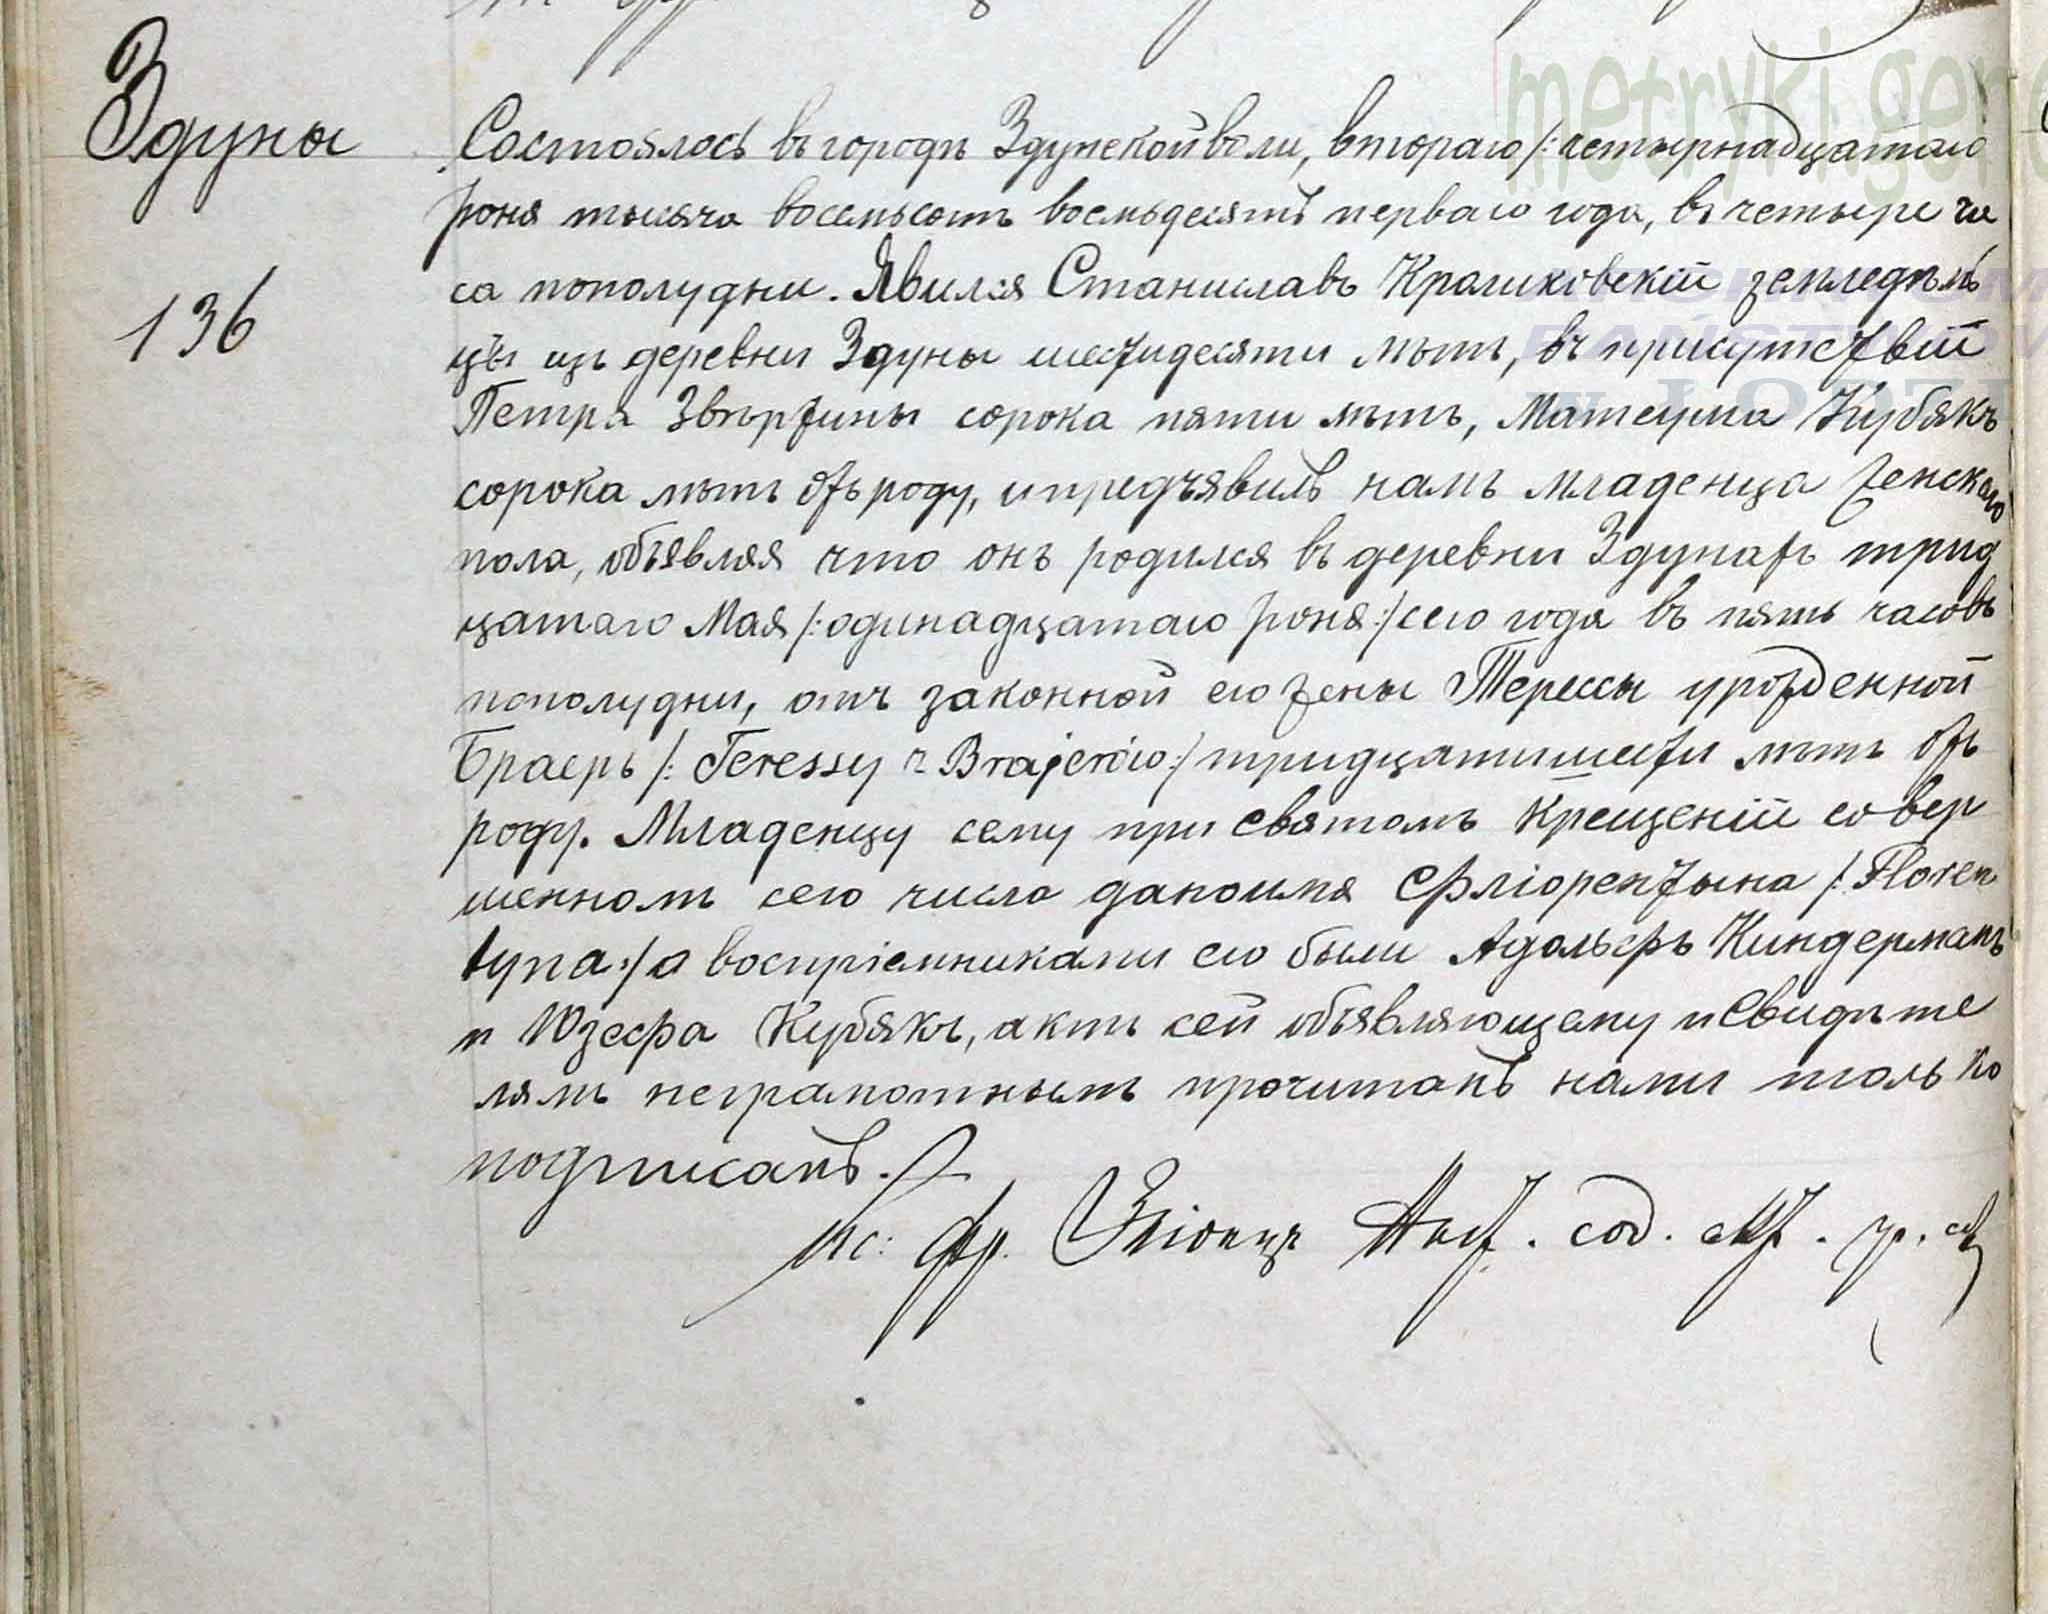 Здуны
136
Состоялось въ городѣ Здунской воли, втораго /:четырнадцатаго
Іюня тысяча восемьсотъ восемьдесятъ перваго года, въ четыре ча
са пополудни. Явился Станиславъ Кроликовскій земледѣль
цъ изъ деревни Здуны шестидесяти лѣтъ, въ присутствіи
Петра Звѣржины сорока пяти лѣтъ, Матеуша Кубякъ
сорока лѣтъ отъ роду, и предъявилъ намъ младенца женскаго
пола, объявляя что онъ родился въ деревни Здунахъ трид
цатаго Мая /:одинадцатаго Іюня:/ сего года въ пять часовъ
пополудни, отъ законной его жены Терессы урожденной
Браеръ /: Teressy z Brajerów:/ тридцатишести лѣтъ отъ
роду. Младенцу сему при Святомъ Крещеніи совер
шенномъ сего числа дано имя Флiорентына /: Floren
tyna:/ а воспріемниками его были Адольфъ Киндерманъ
и Юзефа Кубякъ, актъ сей объявляющему и Свидѣте
лямъ неграмотнымъ прочитанъ нами только
подписанъ.
Кс: Фр. сод. акт. гр. с.
metryki.gene
PAŃSTWOW
W ŁODZI